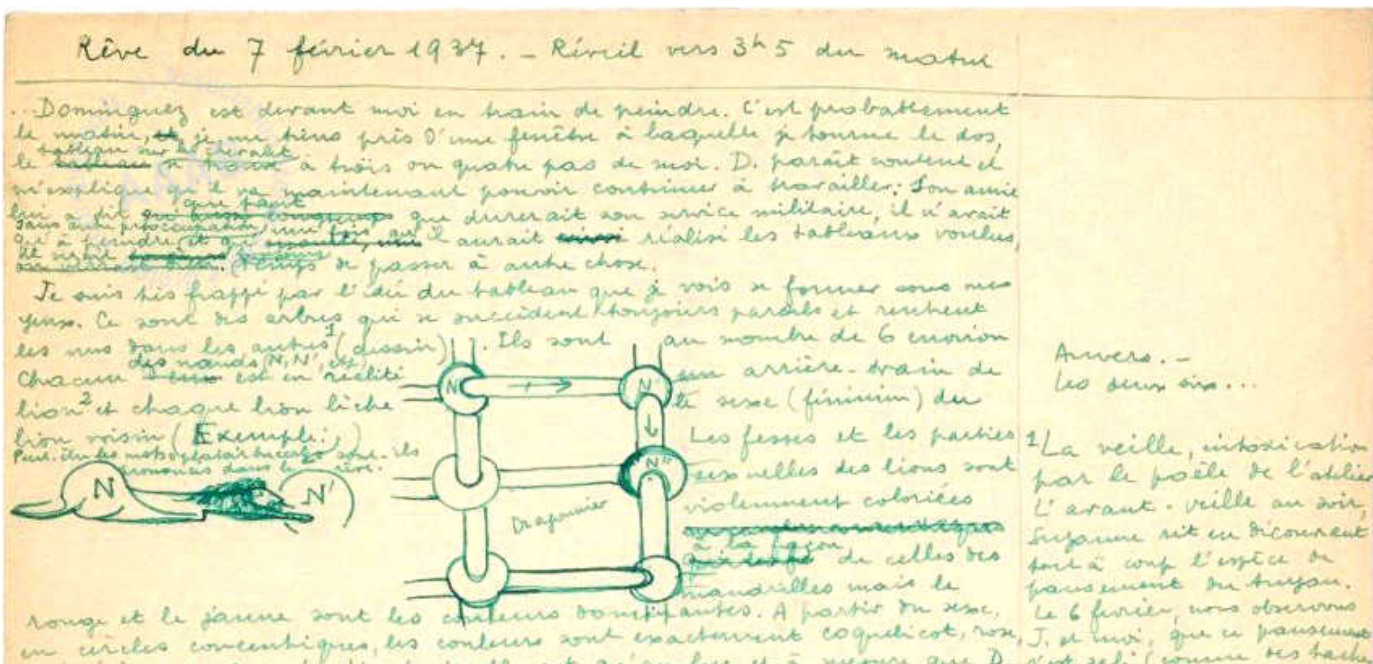 Rêve du 7 février 1937. – Réveil vers 3h 5 du matin
...Dominguez est devant moi en train de peindre. C'est probablement
le matin, et je me tiens près d'une fenêtre à laquelle je tourne le dos,
tableau sur le chevalet
le tableau se trouve à trois ou quatre pas de moi. D. paraît content et
m'explique qu'il va maintenant pouvoir continuer à travailler: Son amie
que tant
lui a dit que durerait son service militaire, il n'avait
sans autre préoccupation, une fois qu'il aurait réalisé les tableaux voulus
qu'à peindre et
temps de passer à autre chose.
Je suis très frappé par l'idée du tableau que je vois se former sous mes
yeux. Ce sont des arbres qui se succèdent toujours pareils et rentrent
les uns dans les autres 1 (dessin). Ils sont au nombre de 6 environ
des nœuds (N, N', etc.)
Chacun d'eux est en réalité un arrière-train de
lion 2 et chaque lion lèche le sexe (féminin) du
lion voisin (Exemple:)
Peut-être les mots ont-ils
prononcés dans le rêve.
N N'
N N' N''
Dragonnier
Les fesses et les parties
sexuelles des lions sont
violemment coloriées
à la façon
de celles des
mandrilles mais le
rouge et le jaune sont les couleurs dominantes. A partir du sexe,
en cercles concentriques, les couleurs sont exactement coquelicot, rose,
Anvers. –
Les deux six...
1 La veille, intoxication
par le poêle de l'atelier
L'avant-veille au soir,
Suzanne rit en découvrant
tout à coup l'espèce de
pansement du tuyau.
Le 6 février, nous observons
J. et moi, que ce pansement